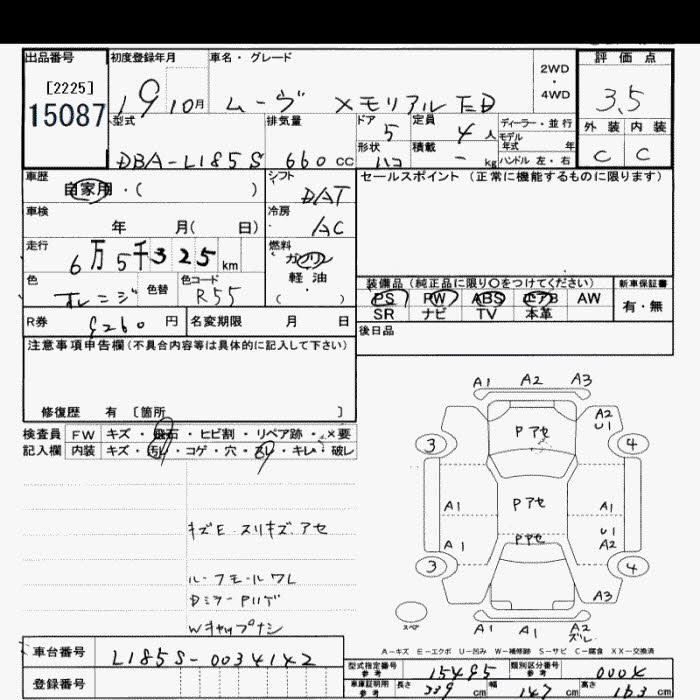 出品番号 初度登録年月 車名・グレード 2WD・4WD 評価点
[2225]
15087 19 10月 ムーヴ メモリアルED 3.5
型式 排気量 ドア 5 定員 4人 ディーラー・並行 外装 内装
モデル年式 年式
DBA-L185S 660cc 形状 ハコ 積載 - kg ハンドル 左・右 C C
車歴 自家用・( ) シフト DAT セールスポイント(正常に機能するものに限ります)
車検 年 月( 日) 冷房 AC
走行 6万5千325km 燃料 ガソリン
軽油
( )
色 オレンジ 色替 色コード R55
装備品(純正品に限り○をつけてください) 新車保証書
PS PW ABS エアB AW 有・無
SR ナビ TV 本革
R券 9260円 名変期限 月 日
後日品
注意事項申告欄(不具合内容等は具体的に記入して下さい)
修復歴 有〔箇所 〕
検査員 FW キズ・飛石・ヒビ割・リペア跡・×要
記入欄 内装 キズ・汚レ・コゲ・穴・スレ・キレ・破レ
A1 A2 A3
A2
U1
Pアセ
3 4
A1 Pアセ A1
U1
A1 Pアセ A2
3 4
A3
スペア
A1 A1 A2
ズレ
キズE スリキズ アセ
ルーフモールワレ
DミラーPハゲ
Wキャップナシ
A-キズ E-エクボ U-凹み W-補修跡 S-サビ C-腐食 XX-交換済
車台番号 L185S-0034142
登録番号
型式指定番号 参考 15495 類別区分番号 参考 0004
車庫証明用 参考 長さ 339cm 幅 147cm 高さ 163cm